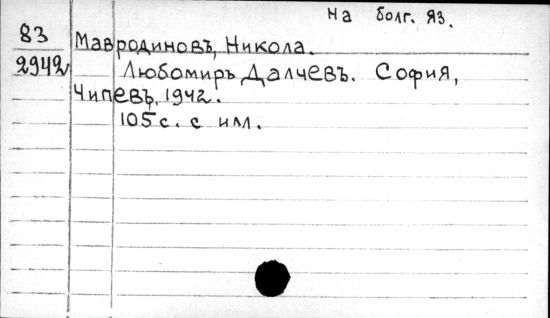 на болг. яз.
83
2942
Мавродиновъ, Никола.
Любомиръ Далчевъ. София,
Чипевъ, 1942.
105 с. с илл.